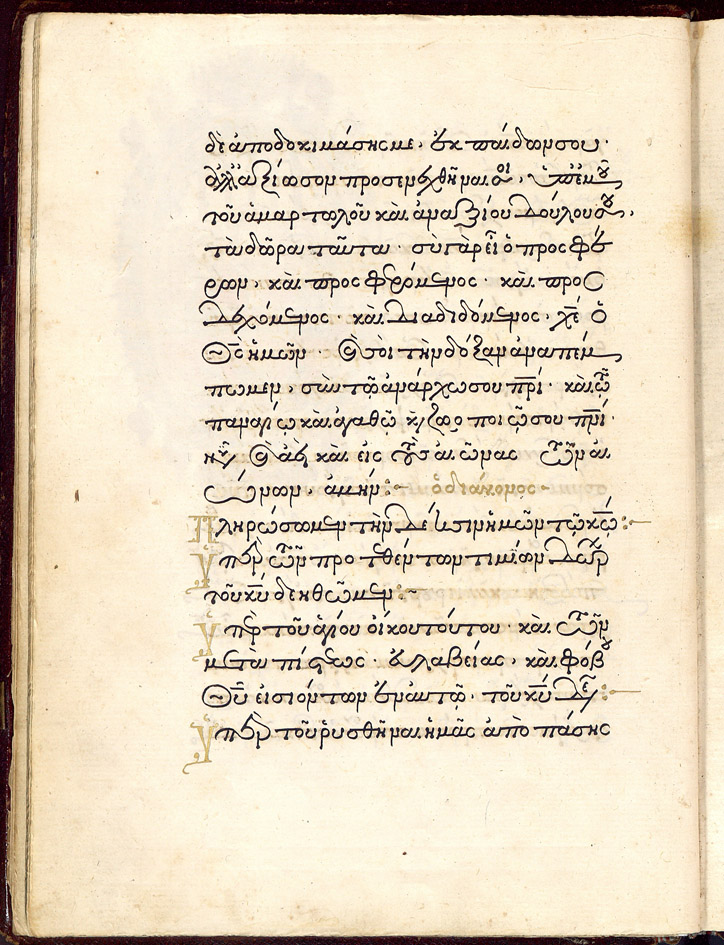 δὲ ἀποδοκιμάσης με, ἐκ παίδων σου·
ἀλλ' ἀξίωσον προσενεχθῆναί σοι, ὑπ' ἐμοῦ
τοῦ ἁμαρτωλοῦ καὶ ἀναξίου δούλου σου,
τὰ δῶρα ταῦτα· σὺ γὰρ εἶ ὁ προσφέ
ρων, καὶ προσφερόμενος· καὶ προσ
δεχόμενος· καὶ διαδιδόμενος, χε ὁ
θς ἡμῶν· καὶ σοὶ τὴν δόξαν ἀναπέμ
πωμεν, σὺν τῷ ἀνάρχω σου πρι· καὶ τῷ
παναγίῳ καὶ ἀγαθῷ καὶ ζωοποιῷ σου πνι·
νῦν καὶ ἀεὶ καὶ εἰς τοὺς αἰῶνας τῶν αἰ
ώνων, ἀμήν:~ ὁ διάκονος~
Πληρώσωμεν τὴν δέησιν ἡμῶν τῷ κω:~
Ὑπὲρ τῶν προτεθέντων τιμίων δώρων
τοῦ κυ δεηθῶμεν:~
Ὑπὲρ τοῦ ἁγίου οἴκου τούτου· καὶ τῶν
μετὰ πίστεως· εὐλαβείας, καὶ φόβου
θυ εἰσιόντων ἐν αὐτῷ· τοῦ κυ δεη:~
Ὑπὲρ τοῦ ῥυσθῆναι ἡμᾶς ἀπὸ πάσης